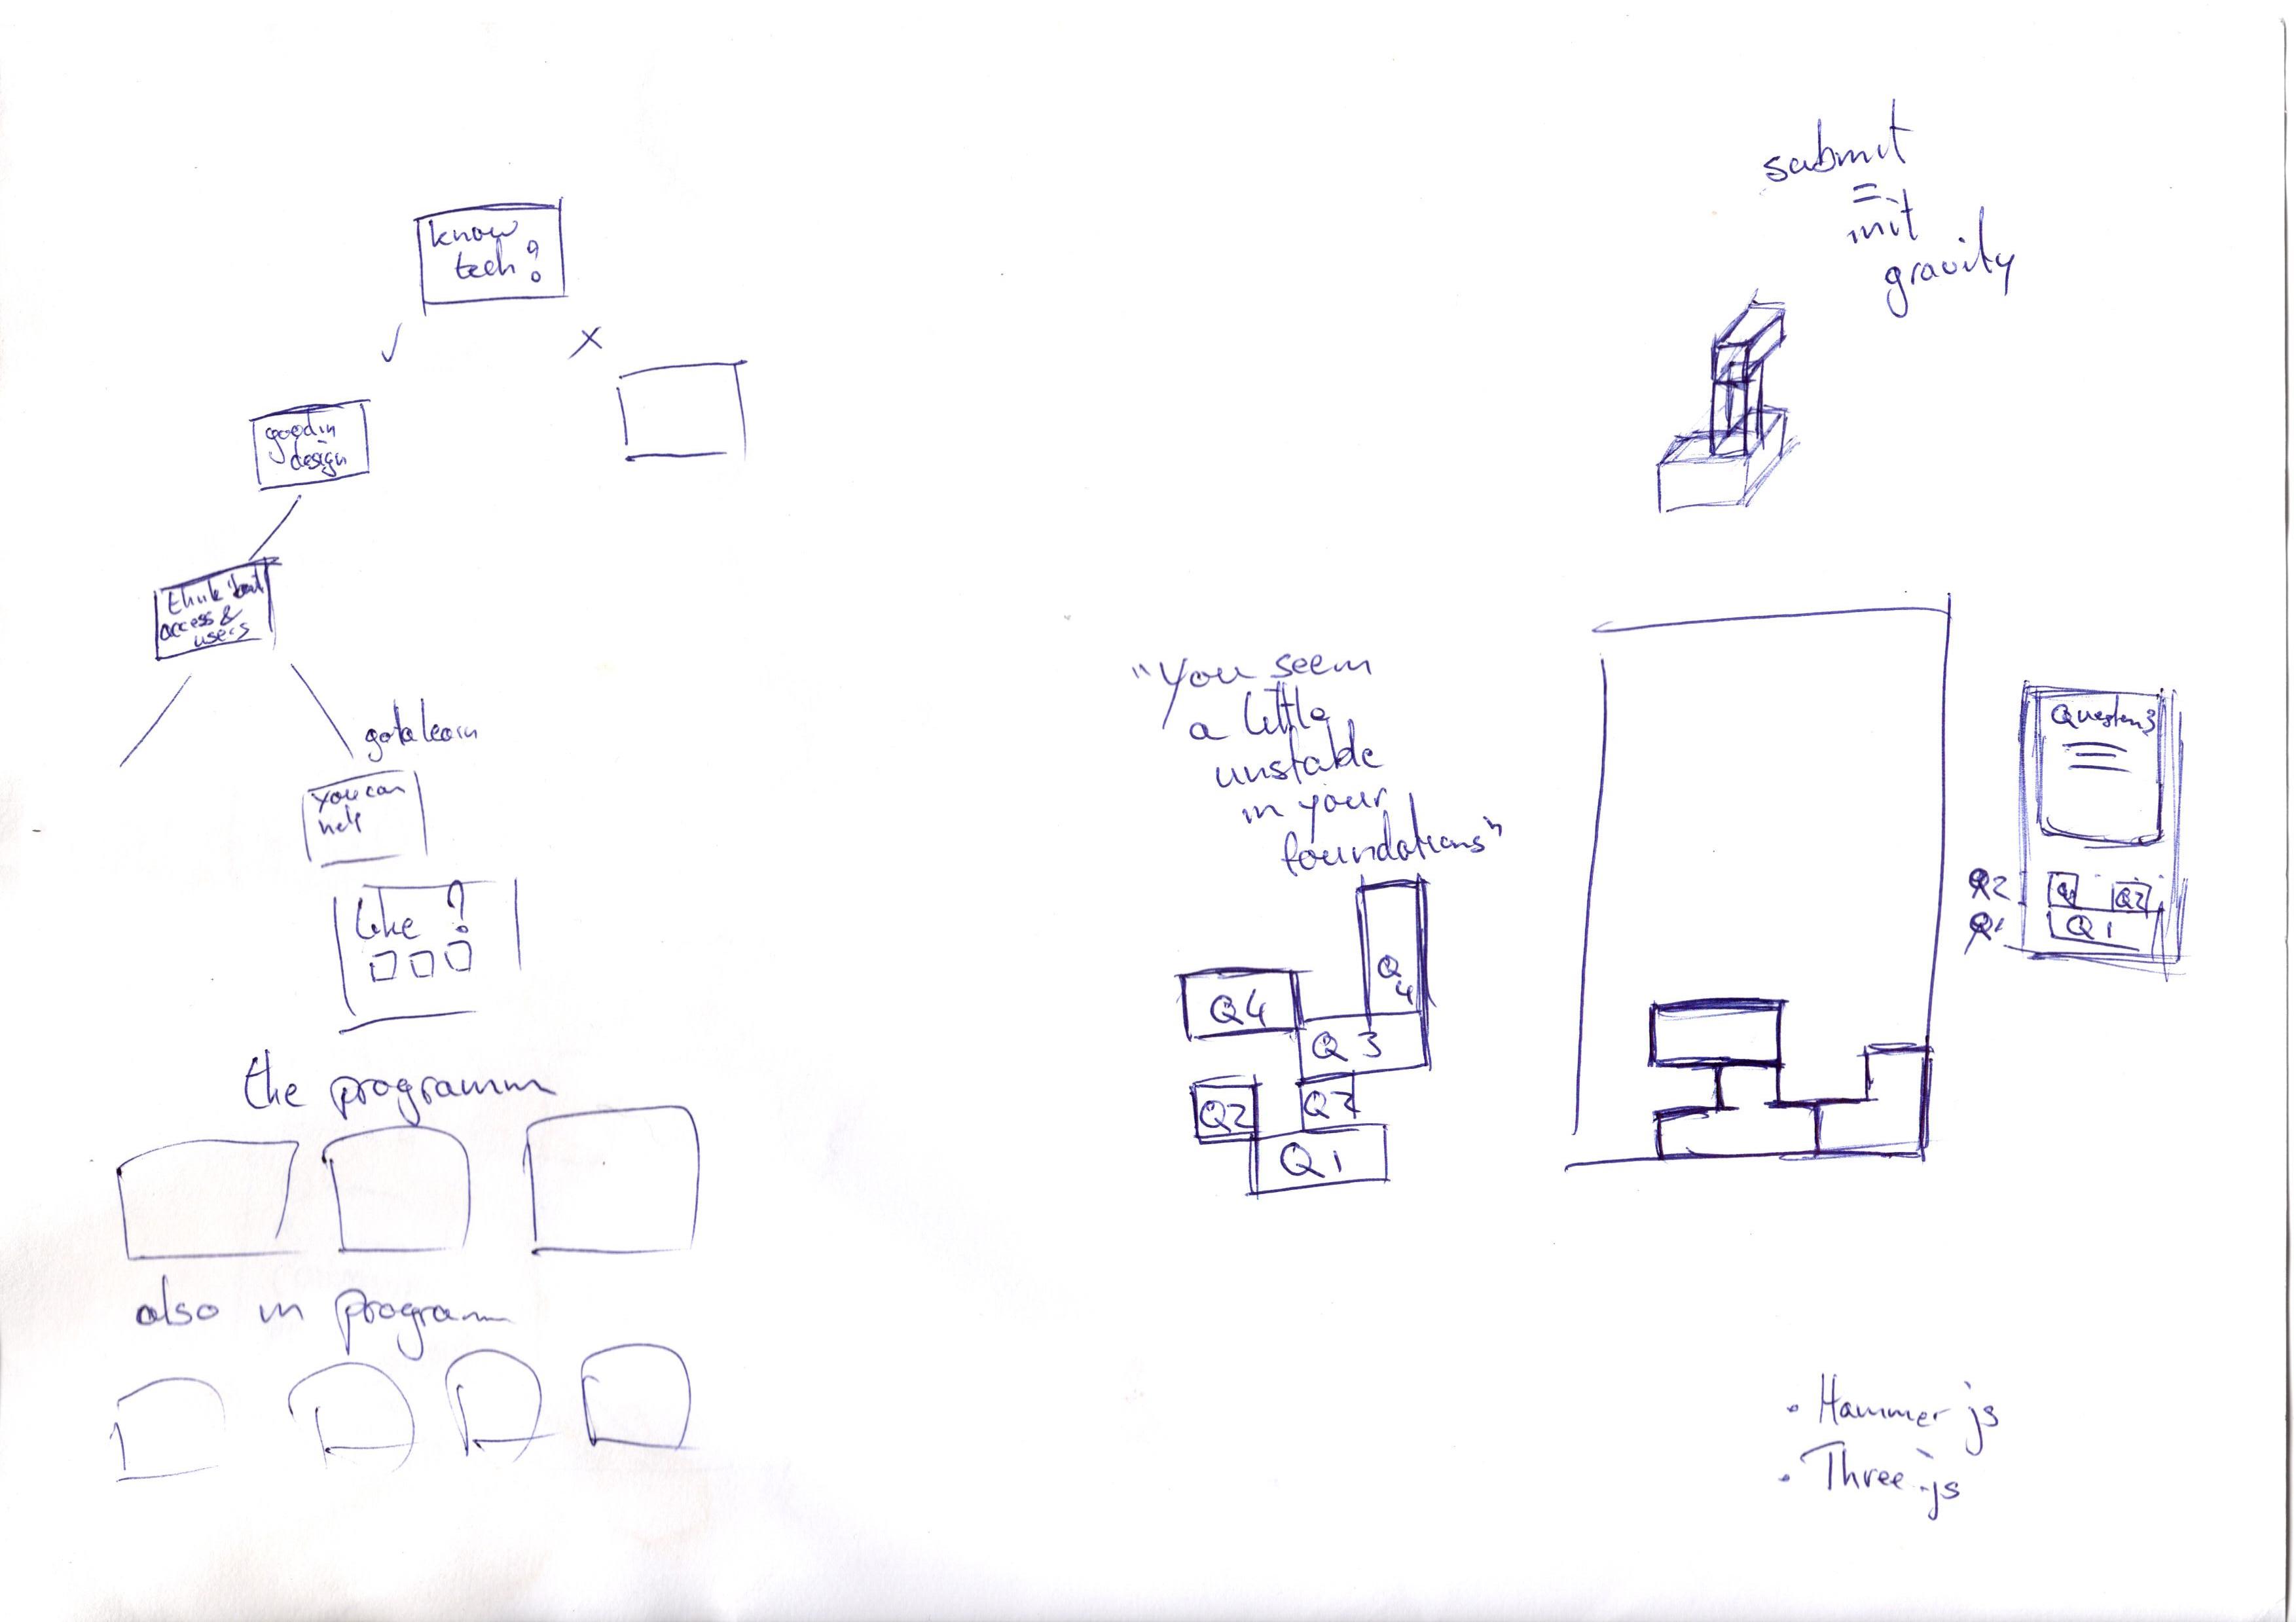 know
tech?
✓
X
good in
design
think 'bout
access &
users
gotalearn
you can
help
like ?
the programm
also in programm
submit
=
init
gravity
"You seem
a little
unstable
in your
foundations"
Q4
Q
4
Q 3
Q2
Q2
Q 1
Question 3
Q2
Q2
Q1
Q 1
• Hammer js
• Three.js